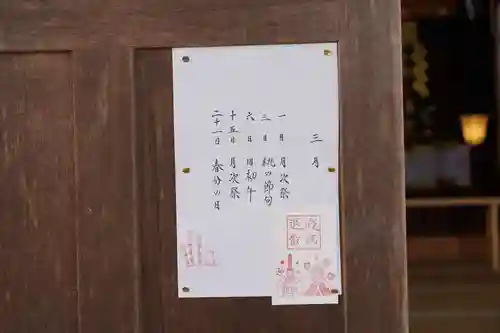 三月
一日 月次祭
三日 桃の節句
六日 旧初午
十五日 月次祭
二十一日 春分の日